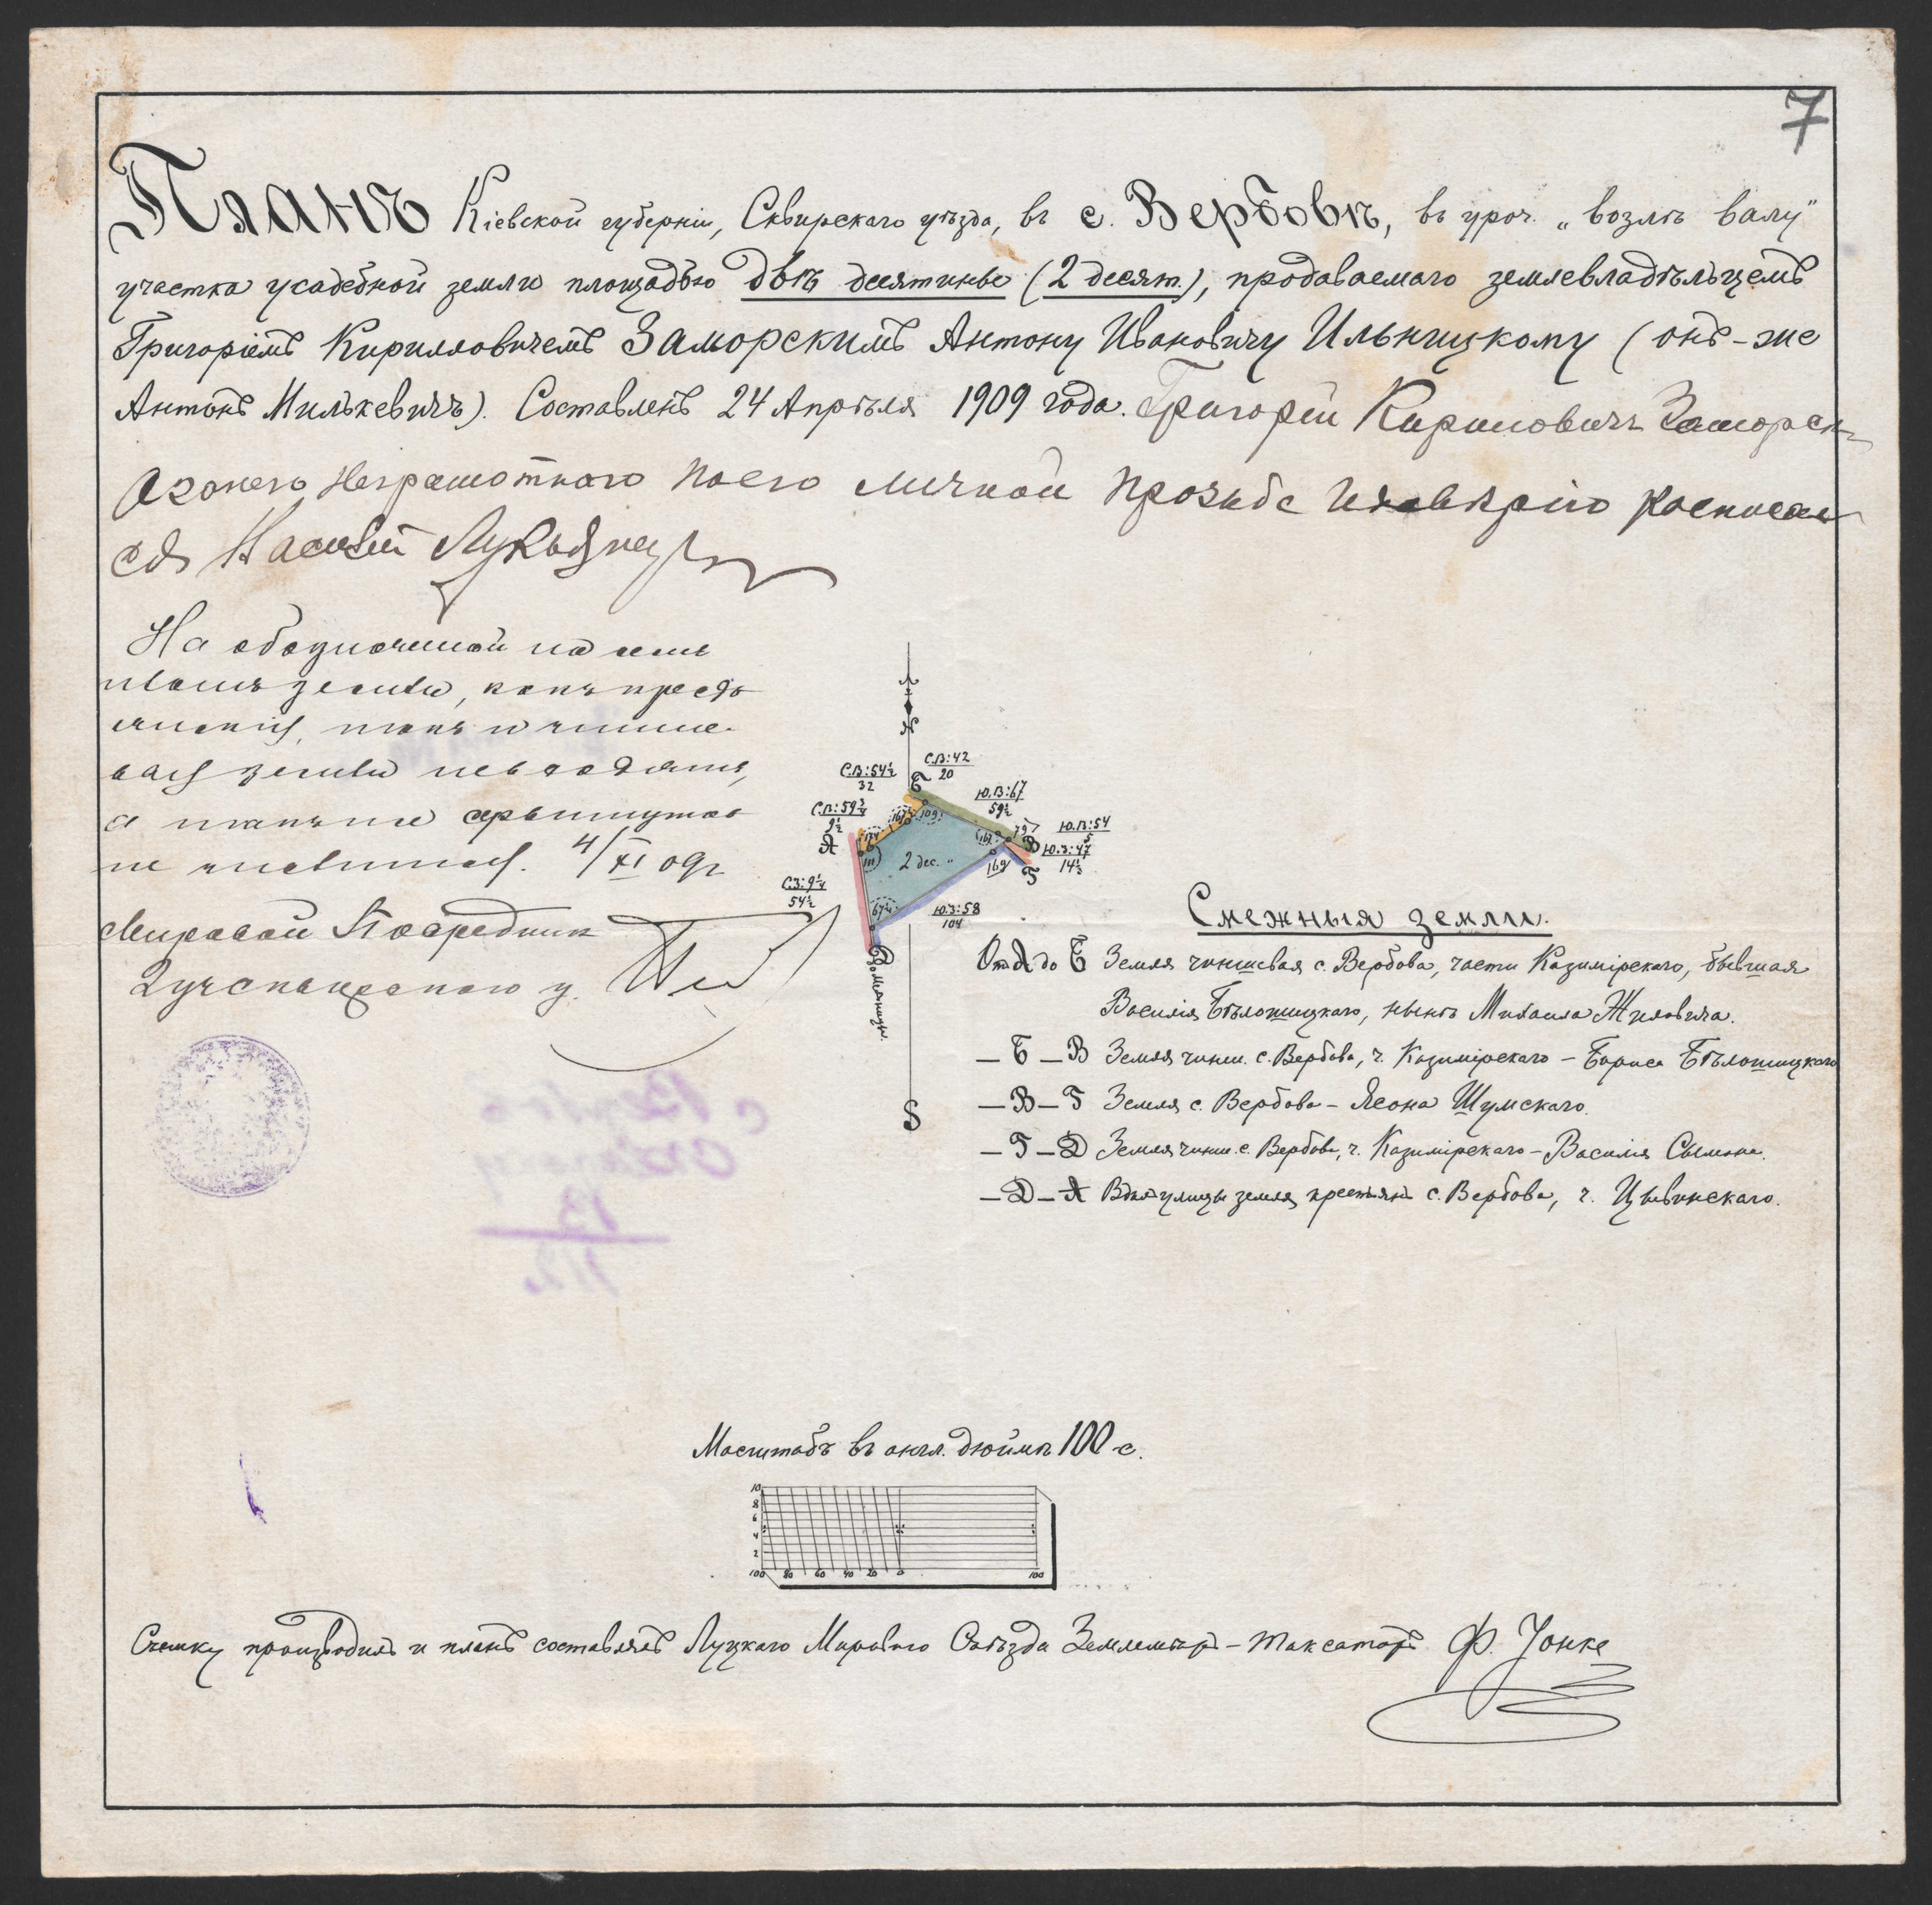 7
Планъ Кіевской губерніи, Сквирскаго уѣзда, въ с. Вербовѣ, въ уроч. „возлѣ валу"
участка усадебной земли площадью двѣ десятины (2 десят.), продаваемаго землевладѣльцемъ
Григоріемъ Кирилловичемъ Заморскимъ Антону Ивановичу Ильницкому (онъ-же
Антонъ Милькевичъ). Составленъ 24 Апрѣля 1909 года. Григорій Кириловичъ Заморск
Азонего неграмотнаго поего личной прозьбе
ся
На обозначенной на семъ
планѣ земли, какъ кресть
янскія, такъ и чинше-
выя земли не входятъ,
а также
не числится. 4/XI 09г
Мировой Посредникъ
2 уч Сквирскаго у.
N
С.В:54½
32
С.В:42
20
Б
Ю.В:67
59½
С.В:59¾
9½
А
Ю.В:54
5
В
Ю.З:47
14½
Г
109
167
174
111
79
162
169
2 дес. "
С.З:9¼
54½
67¼
Ю.З:58
104
Д
S
Смежныя земли.
Отъ А до Б Земля чиншевая с. Вербова, части Казимірскаго, бывшая
Василія Бѣлошицкаго, нынѣ Михаила Жиловича.
— Б — В Земля чинш. с. Вербова, ч. Казимірскаго – Бориса Бѣлошицкаго
— В — Г Земля с. Вербова – Леона Шумскаго.
— Г — Д Земля чинш. с. Вербова, ч. Казимірскаго – Василія
— Д — А Вдоль улицы земля крестьянъ с. Вербова, ч. Цывинскаго.
Масштабъ въ англ. дюймѣ 100 с.
10
8
6
4
2
100 80 60 40 20 0 100
Съемку производилъ и планъ составлялъ Луцкаго Мирового Съѣзда Землемѣръ-таксаторъ Ф. Јонке